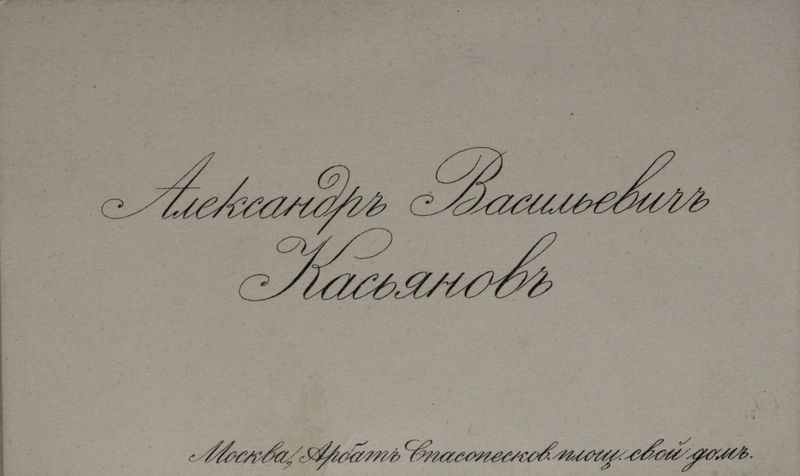 Александръ Васильевичъ
Касьяновъ
Москва, Арбатъ Спасопесков. площ. свой домъ.